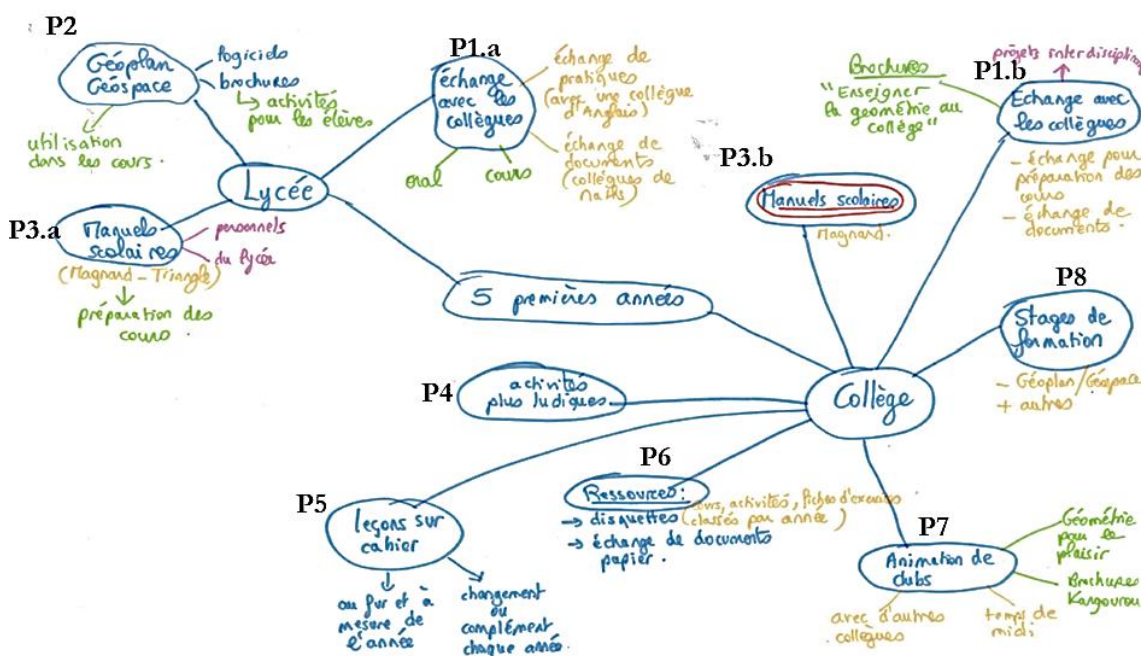 P2
Géoplan
Géospace
logiciels
brochures
↳ activités
pour les élèves
utilisation
dans les cours.
P1.a
échange
avec les
collègues
échange de
pratiques
(avec une collègue
d'Anglais)
échange de
documents
(collègues de
Maths)
oral
cours
Lycée
P3.a
Manuels
scolaires
personnels
du lycée
(Magnard - Triangle)
préparation des
cours
5 premières années
P3.b
Manuels scolaires
Magnard.
projets interdiscipli
P1.b
Echange avec
les collègues
Brochures
"Enseigner
la géométrie au
collège"
- échange pour
préparation des
cours
- échange de
documents.
P8
Stages de
formation
- Géoplan/Géospace
+ autres
Collège
P4
activités
plus ludiques
P5
leçons sur
cahier
au fur et à
mesure de
l'année
changement
ou
complément
chaque année.
P6
Ressources:
→ disquettes (cours, activités, fiches d'exercices
classés par année)
→ échange de documents
papier.
P7
Animation de
clubs
Géométrie
pour le
plaisir
Brochures
Kangourou
avec d'autres
collègues
temps de
midi